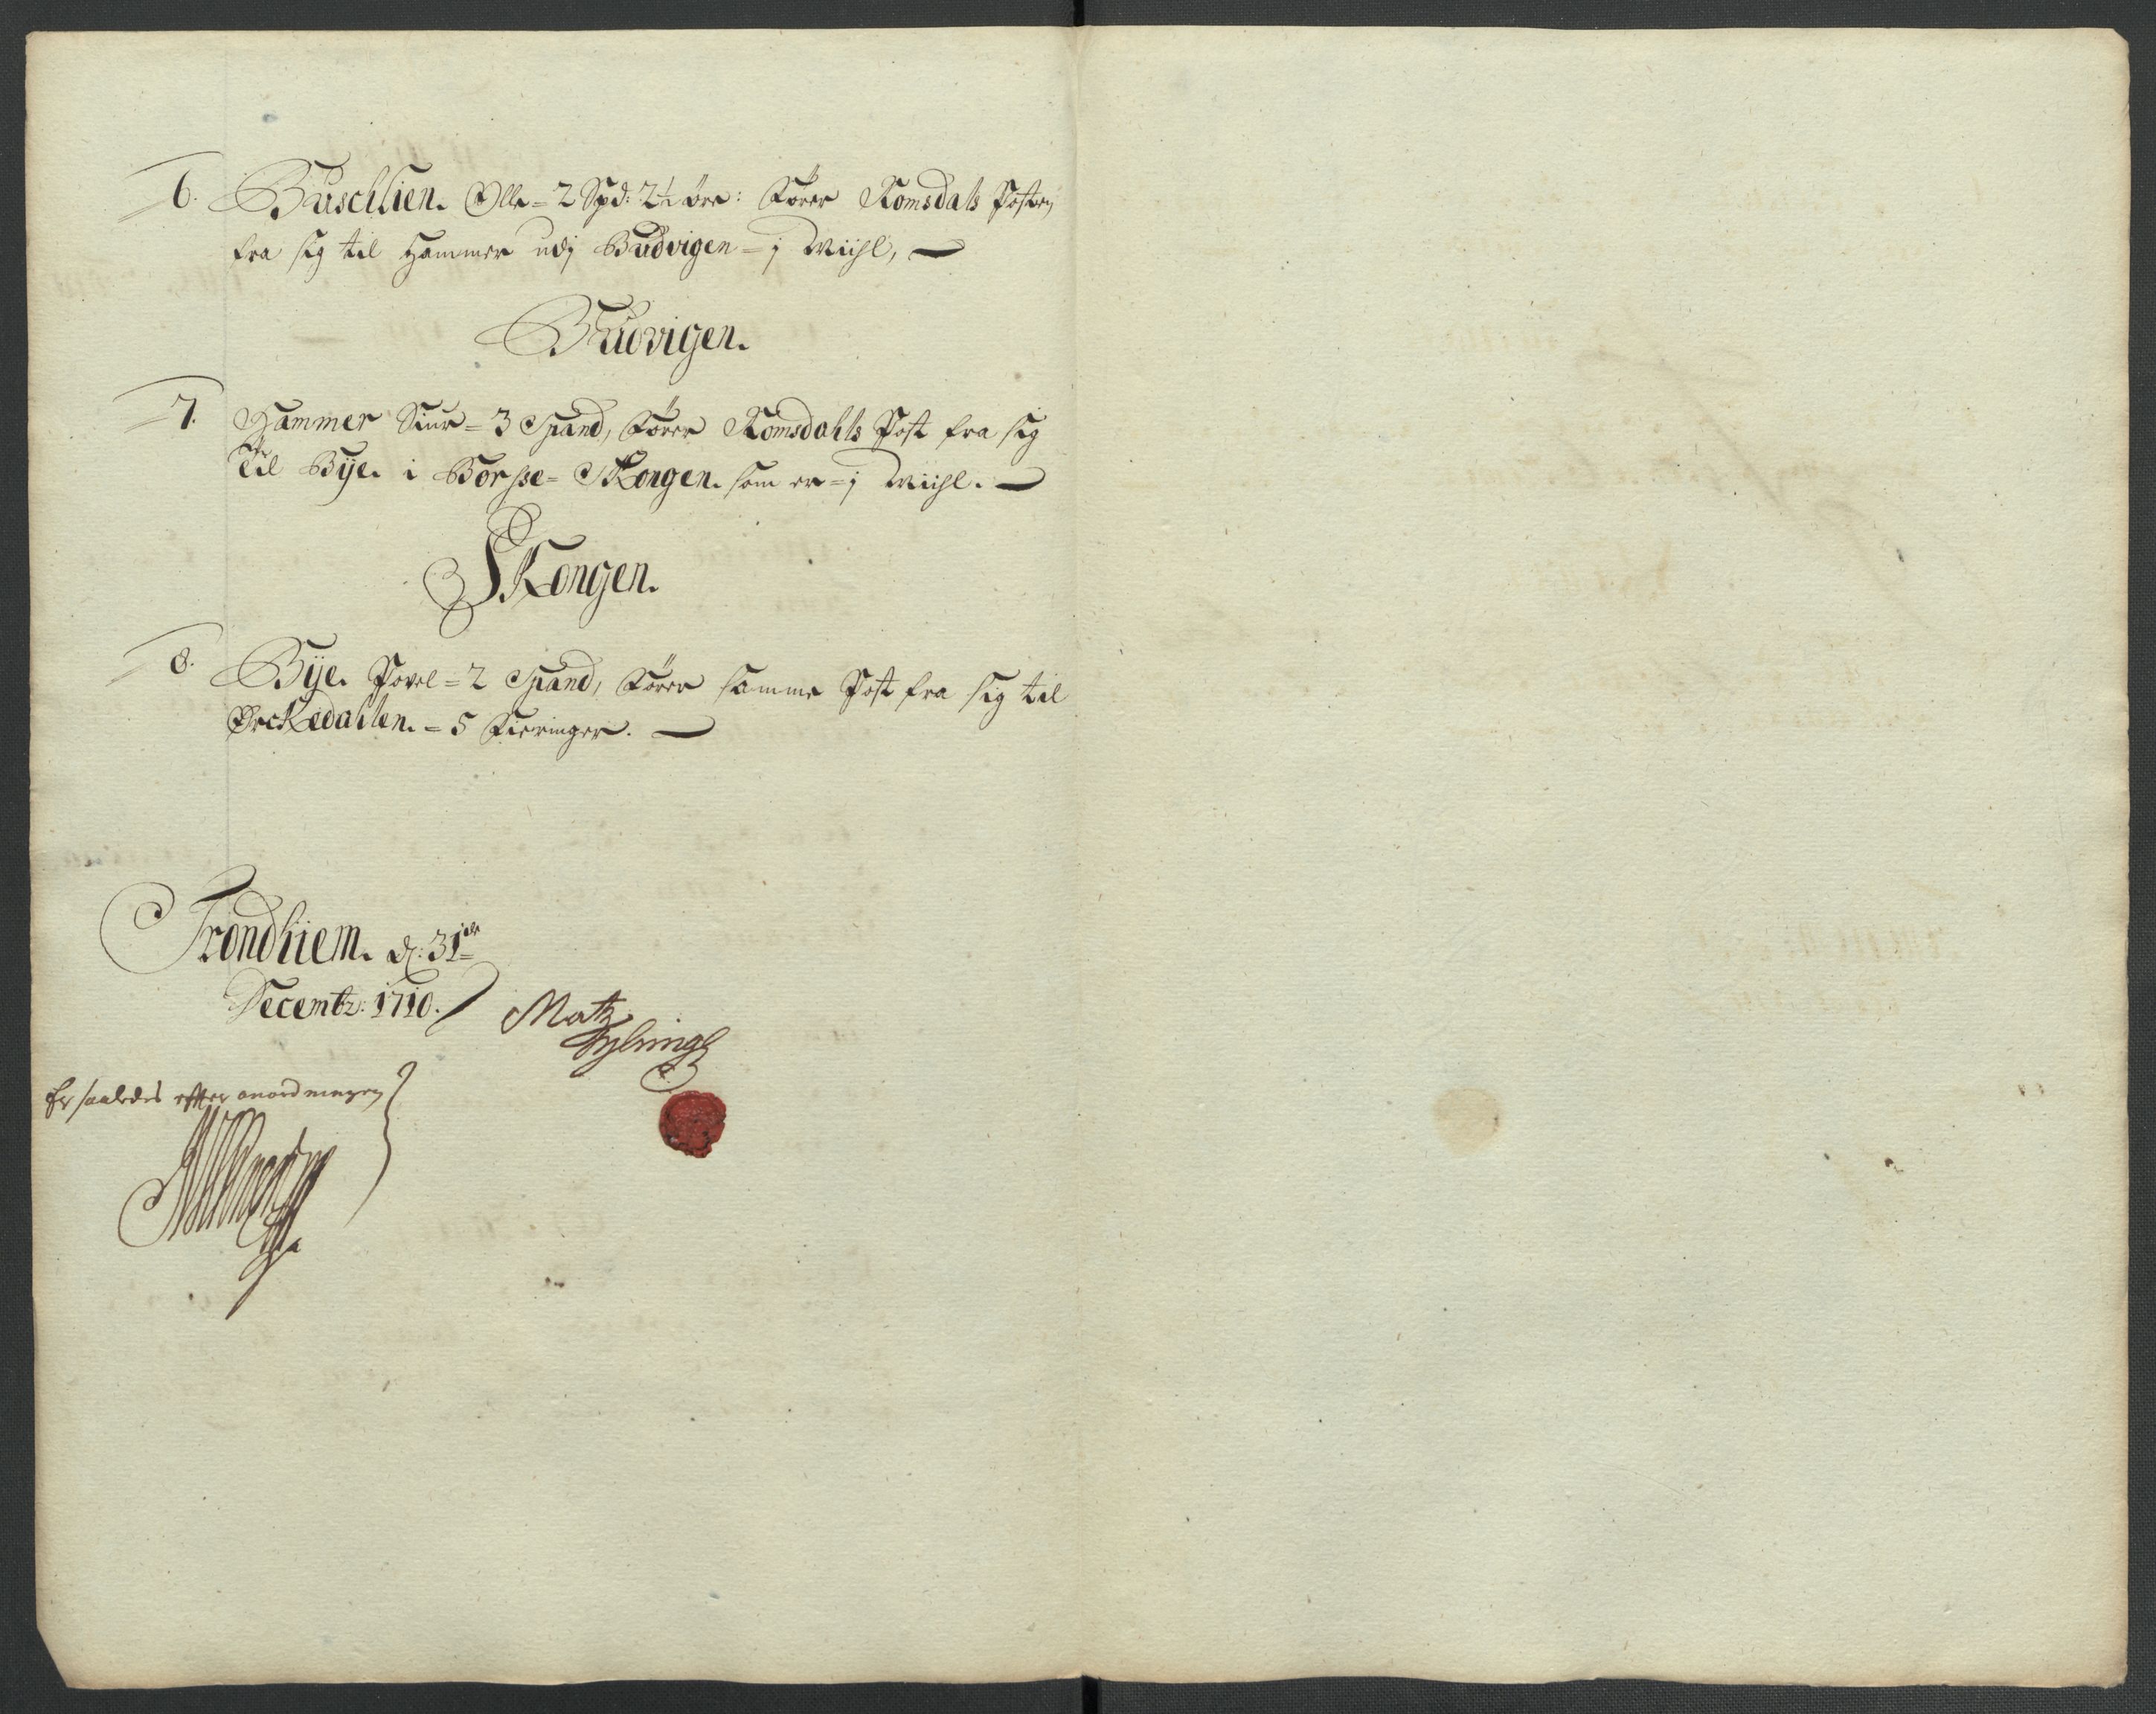 6. Buschlien. Olle = 2 Spd: 2½ øre: Fører Romsdals Posten
fra sig til Hammer udj Budvigen = j Miihl, —
Budvigen.
7. Hammer Siur = 3 Spand, Fører Romsdahls Post fra sig
til Bÿe. i Børsse = Skongen. som er = j Miihl. —
Skongen.
8. Bÿe. Povel = 2 Spand, Fører samme Post fra sig til
Ørckedahlen. = 5 Fieringer. —
Trondhiem. d: 31te
Decembr: 1710.
Matz
Er saaledes efter anordningen